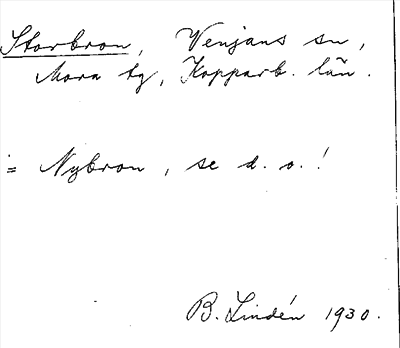 Storbron, Venjans sn,
Mora tg, Kopparb. län.
= Nybron, se d. o.!
B. Lindén 1930.